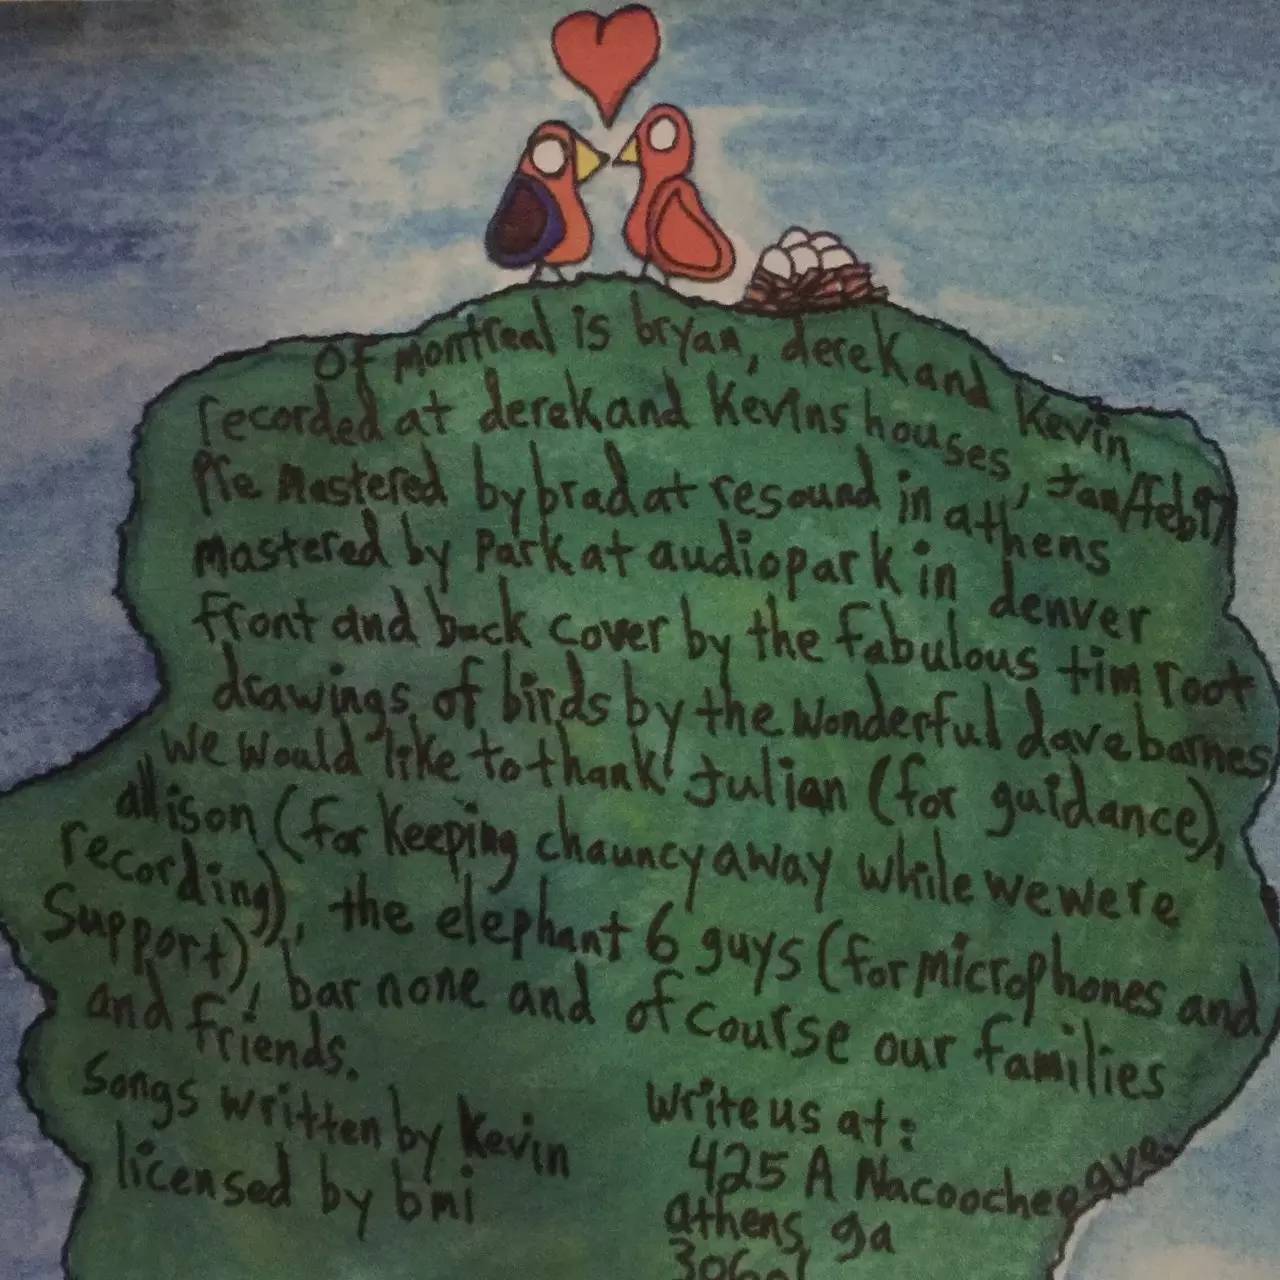 of montreal is bryan, derek and Kevin
recorded at derek and Kevins houses, Jan/feb 97
Pre mastered by brad at resound in athens
mastered by Park at audiopark in denver
front and back cover by the fabulous tim root
drawings of birds by the wonderful dave barnes
we would like to thank: Julian (for guidance),
allison (for keeping chauncy away while we were
recording), the elephant 6 guys (for microphones and
Support), bar none and of course our families
and friends.
Songs written by Kevin
licensed by bmi
write us at:
425 A Nacoochee ave.
athens, ga
30601